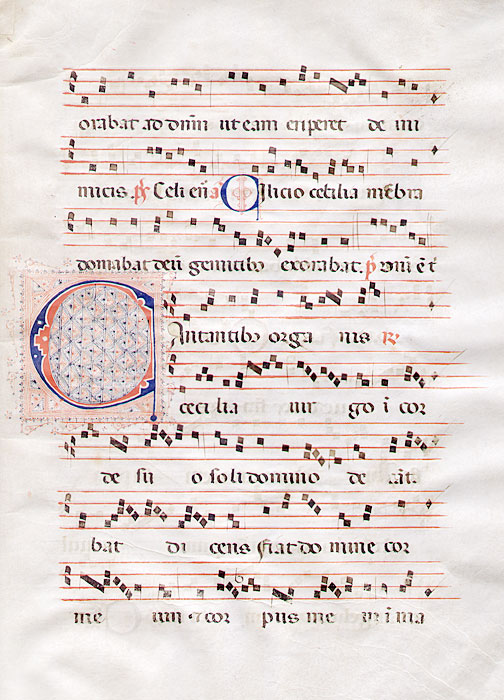 orabat ad dnm ut eam eriperet de ini
micis. ps Celi en a Cilicio cecilia mebra
domabat deu gemitibus exorabat. ps Dni e t
Cantantibus orga nis R
cecilia uir go i cor
de su o soli domino de cat
bat di cens fiat do mine cor
me um et cor pus me um i ma